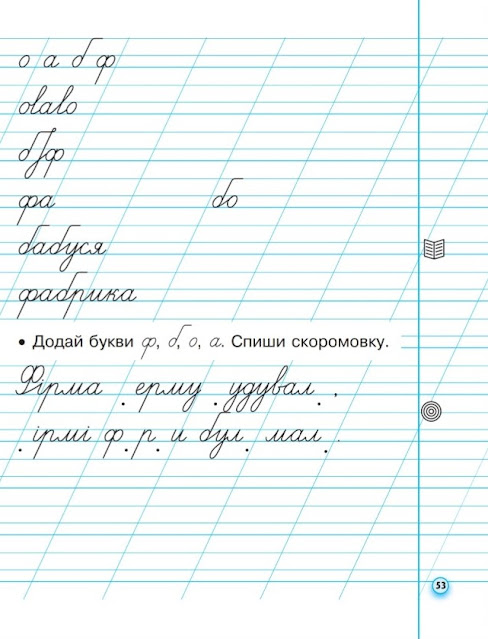 о а б ф
оваво
б ф
фа бо
бабуся
фабрика
• Додай букви ф, б, о, а. Спиши скоромовку.
Фірма . ерму . удувал . ,
. ірмі ф . р . и бул . мал . .
53